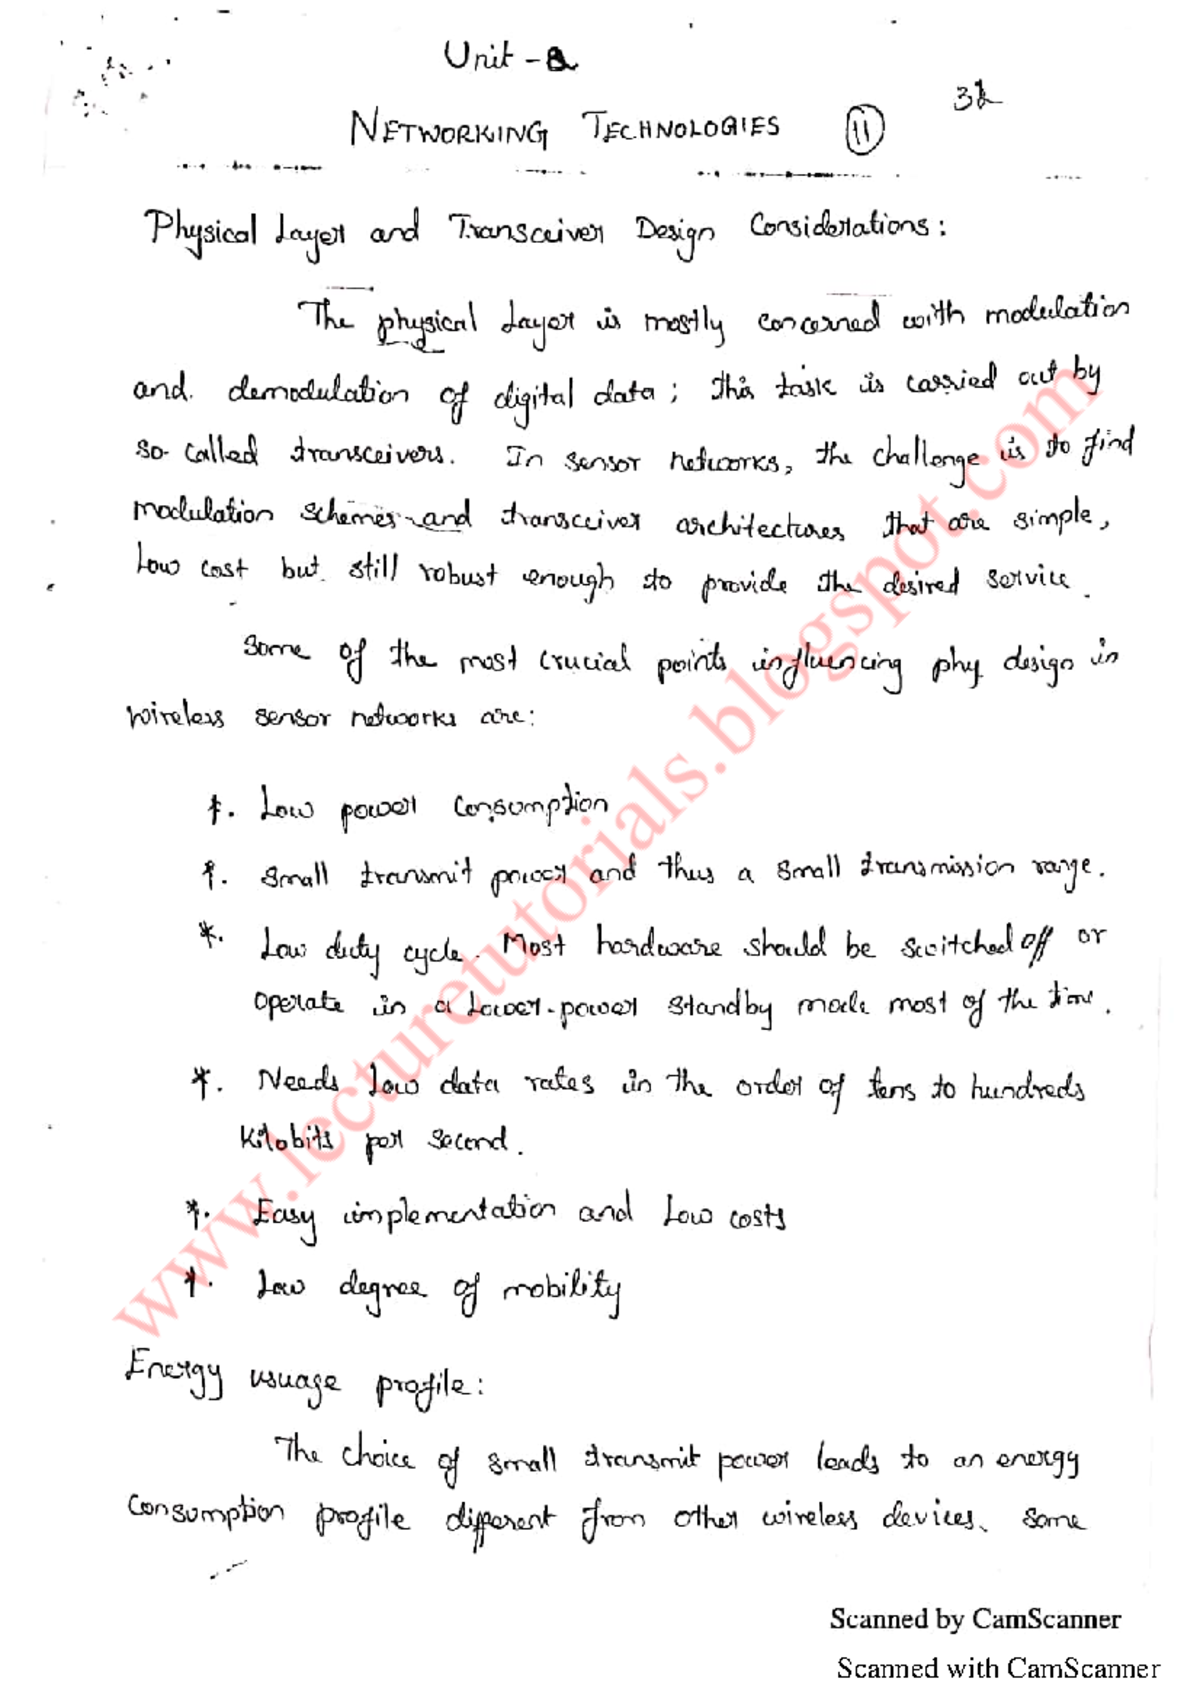 Unit - 2
32
NETWORKING TECHNOLOGIES 11
Physical Layer and Transceiver Design Considerations:
The physical Layer is mostly concerned with modulation
and. demodulation of digital data; this task is carried out by
so-called transceivers. In sensor networks, the challenge is to find
modulation schemes and transceiver architectures that are simple,
Low cost but still robust enough to provide the desired service.
Some of the most crucial points influencing phy design in
wireless sensor networks are:
*. Low power consumption
*. Small transmit power and thus a small transmission range.
*. Low duty cycle. Most hardware should be switched off or
operate in a Lower-power standby mode most of the time.
*. Needs Low data rates in the order of tens to hundreds
kilobits per second.
*. Easy implementation and Low costs
*. Low degree of mobility
Energy usuage profile:
The choice of small transmit power leads to an energy
consumption profile different from other wireless devices. Some
www.lecturetutorials.blogspot.com
Scanned by CamScanner
Scanned with CamScanner